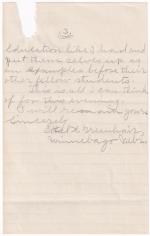 3.
Education like I had and
put them selves up as
an examples before their
other fellow students.
This is all I can think
of for this evening.
I will remain yours
Sincerely
Greenhair,
Winnebago Nebr.